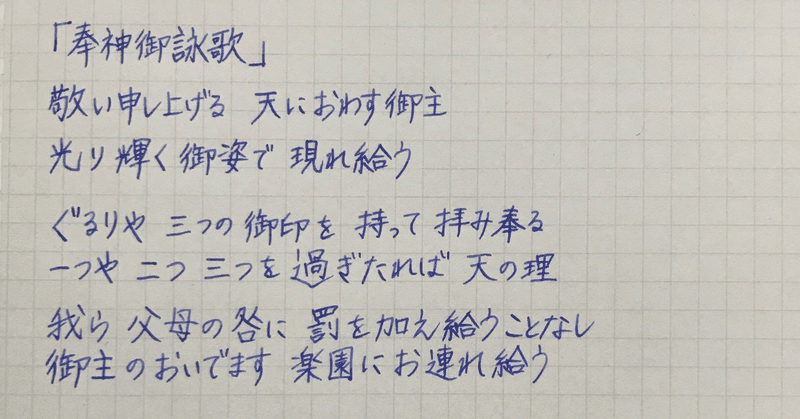 「奉神御詠歌」
敬い申し上げる 天におわす御主
光り輝く御姿で 現れ給う
ぐるりや 三つの御印を 持って 拝み奉る
一つや 二つ 三つを 過ぎたれば 天の理
我ら 父母の咎に 罰を加え給うことなし
御主のおいでます 楽園にお連れ給う